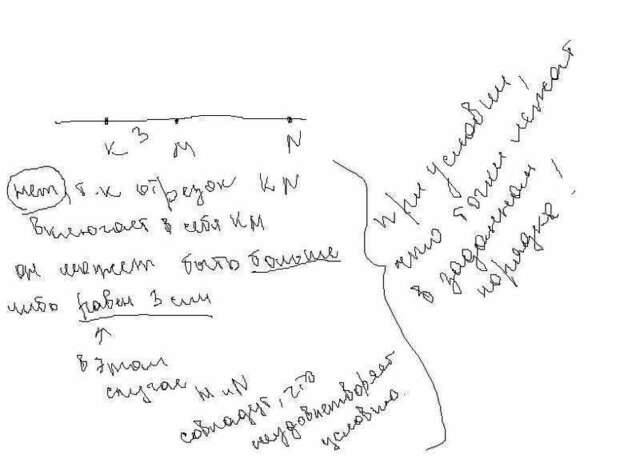 K 3 M N
нет, т.к отрезок KN
включает в себя KM
он может быть больше
либо равен 3 см
в этом
случае M и N
совпадут, что
неудовлетворяет
условию.
при условии,
что точки лежат
в заданном
порядке!